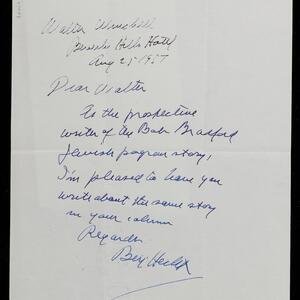 Walter Winchell
Beverly Hills Hotel
Aug 25 1957
Dear Walter
As the prospective
writer of the Bob Bradford
Jewish pogrom story,
I'm pleased to have you
write about the same story
in your column
Regards
Ben Hecht